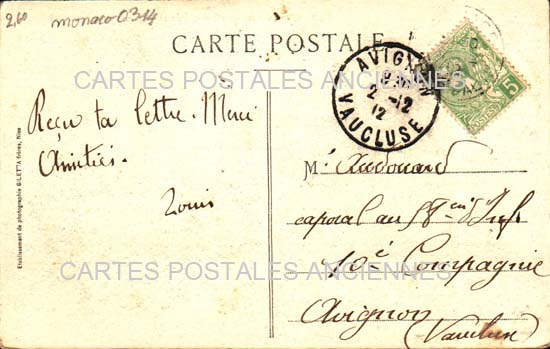 2,60
monaco0314
CARTE POSTALE
AVIGNON
2-12
12
VAUCLUSE
5
POSTES
Reçu ta lettre. Merci
Amitiés.
Louis
M. Audouard
caporal au 58 ème d'Inf
10 è Compagnie
Avignon
(Vaucluse)
Etablissement de photographie GILETTA frères, Nice
CARTES POSTALES ANCIENNES
CARTES POSTALES ANCIENNES